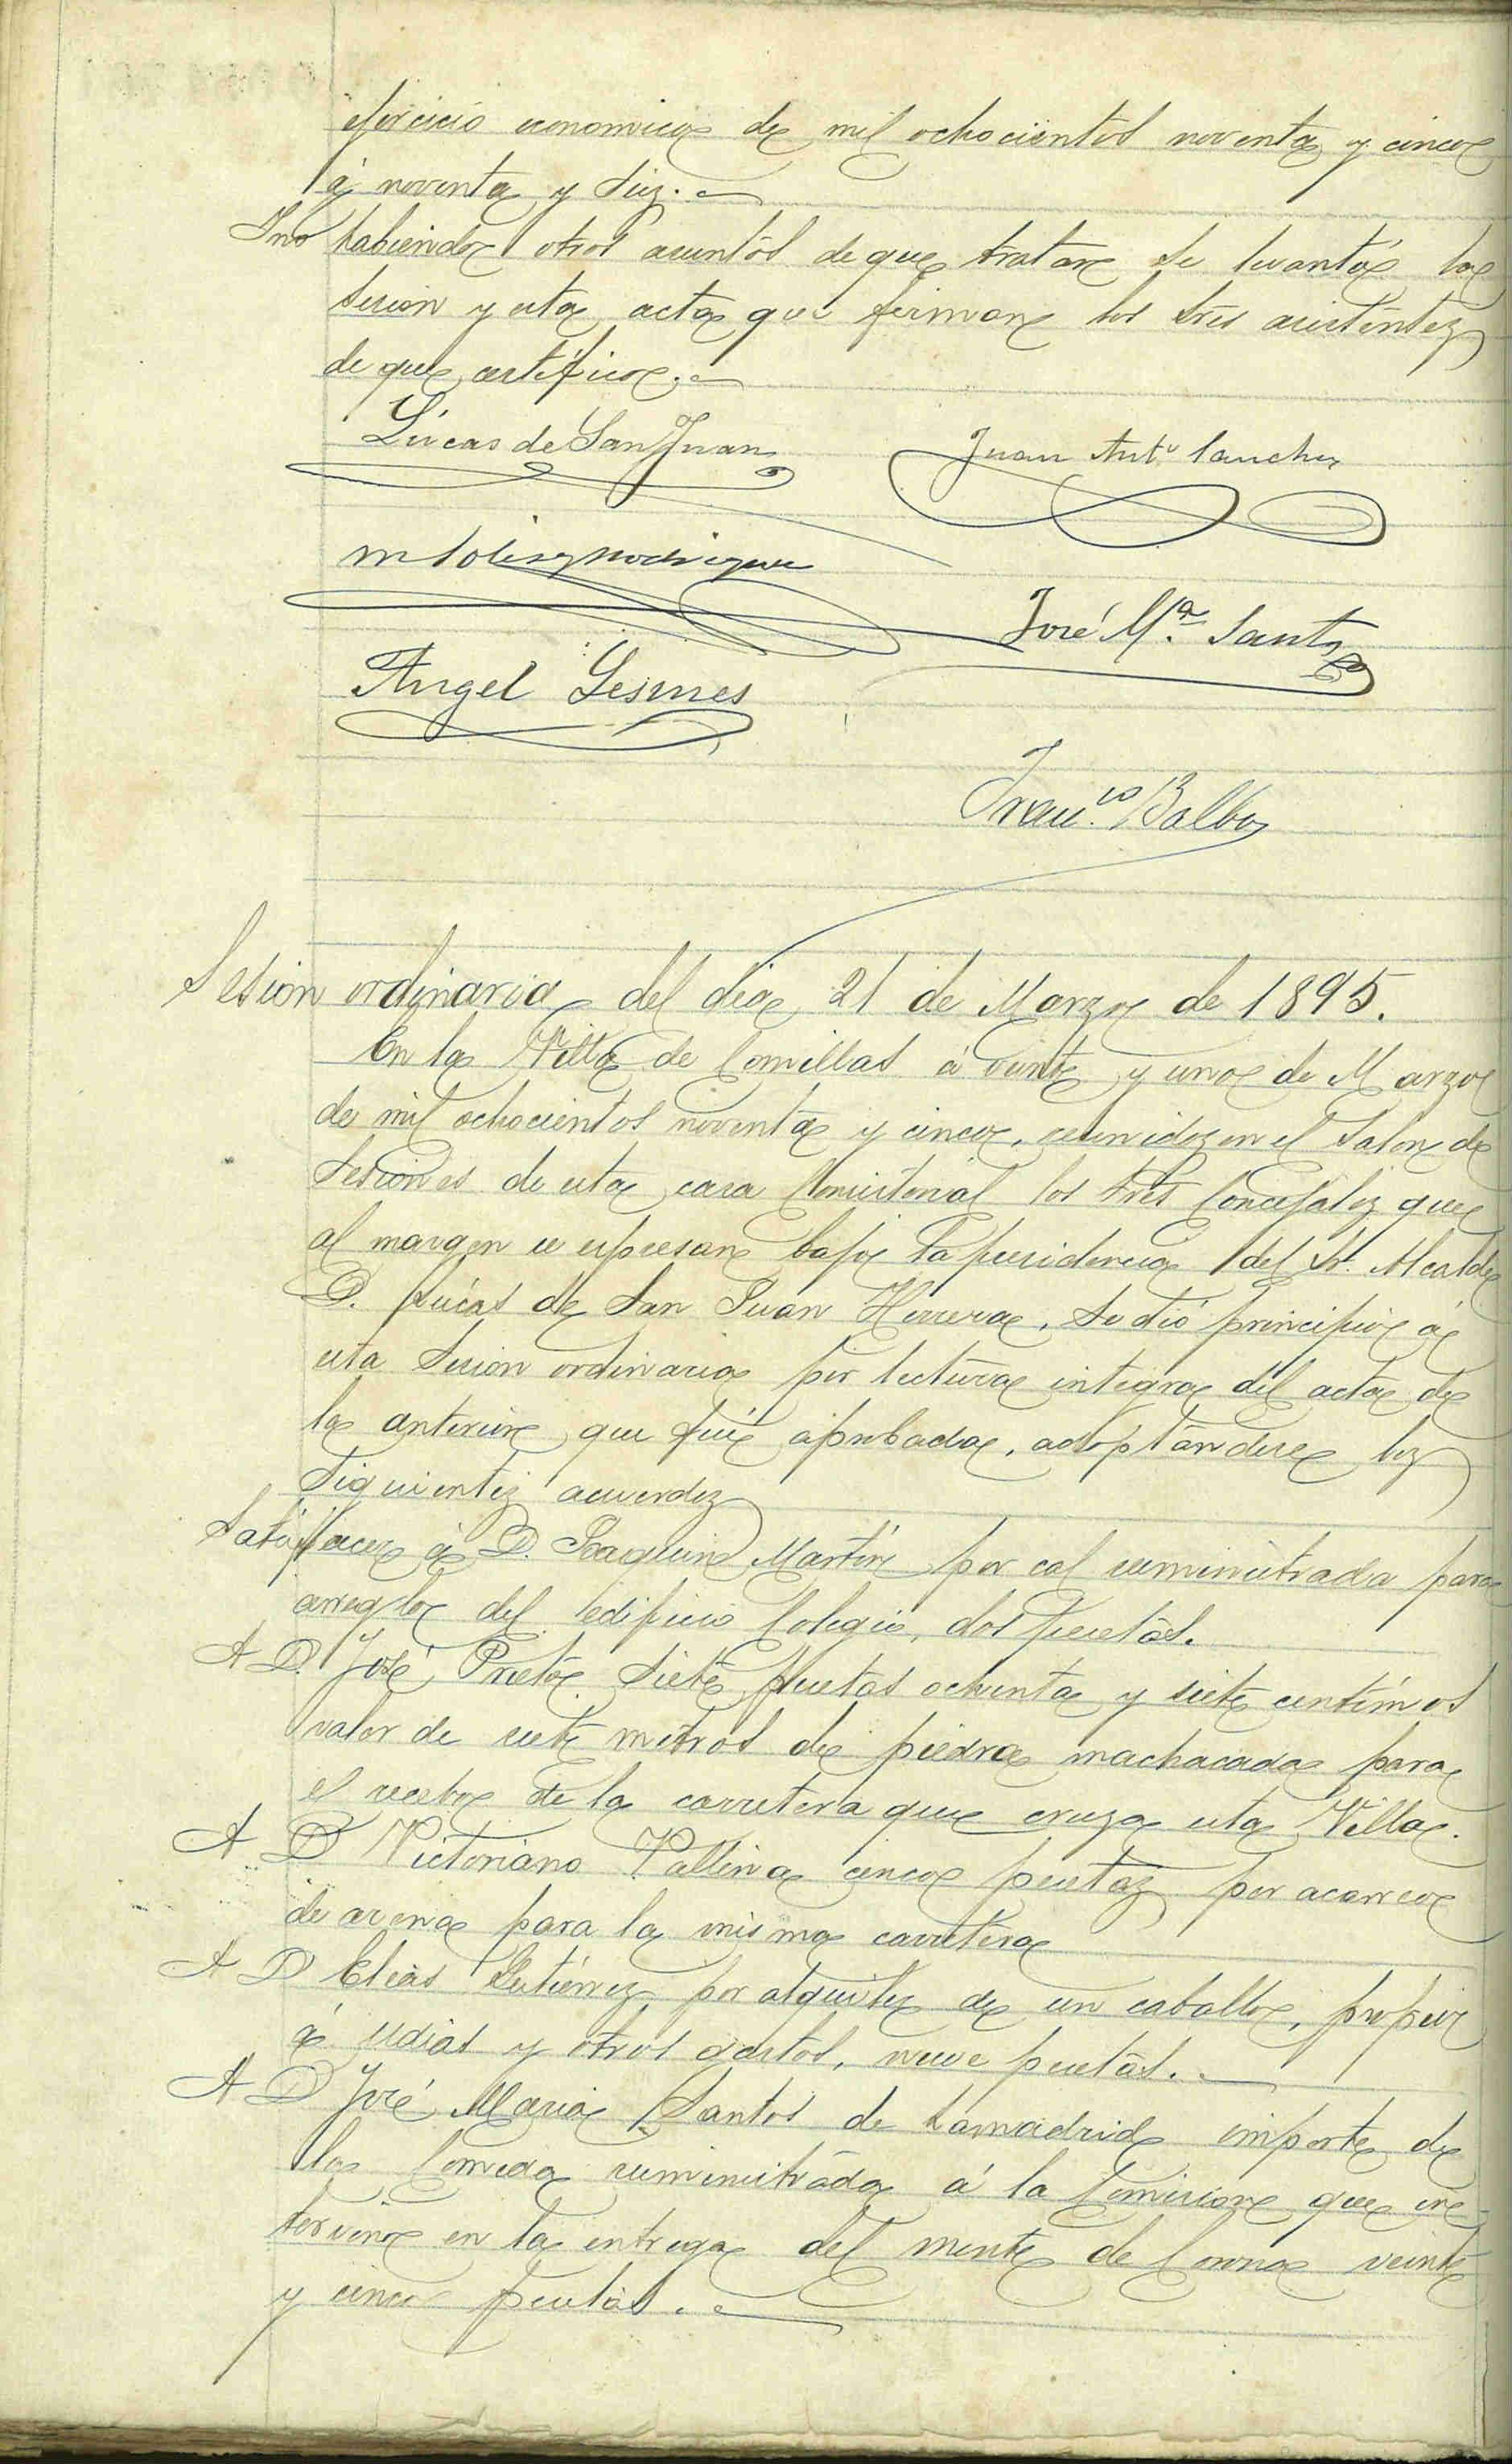 ejercicio economico de mil ochocientos noventa y cinco
á noventa y seiz.
Y no habiendo otros asuntos de que tratar se levantó la
sesion y esta acta que firman los Sres asistentez
de que certifico.
Lúcas de San Juan
Juan Ant.º Sanchez
José M.ª Santos
Angel Lesmes
Fran.co Balbas
Sesion ordinaria del dia 21 de Marzo de 1895.
En la Villa de Comillas á veinte y uno de Marzo
de mil ochocientos noventa y cinco, reunidoz en el Salon de
Sesiones de esta casa Consistorial los Sres Concejalez que
al margen se espresan bajo la presidencia del Sr. Alcalde
D. Lúcas de San Juan Herrera, se dió principio á
esta sesion ordinaria por lectura integra del acta de
la anterior que fué aprobada, adoptandose loz
siguientez acuerdoz
Satisfacer á D. Joaquin Martin por cal suministrada para
arreglo del edificio Colegio, dos pesetas.
A D. José Prieto siete pesetas ochenta y siete centimos
valor de siete metros de piedra machacada para
el recebo de la carretera que cruza esta Villa.
A D Victoriano Vallina cinco pesetaz por acarreo
de arena para la misma carretera
A D Elias Gutiérrez por alquiler de un caballo,
y otros gastos, nueve pesetas.
A D José Maria Santos de Lamadrid importe de
la comida suministrada á la Comision que in-
tervino en la entrega del monte de Corona veinte
y cinco pesetas.